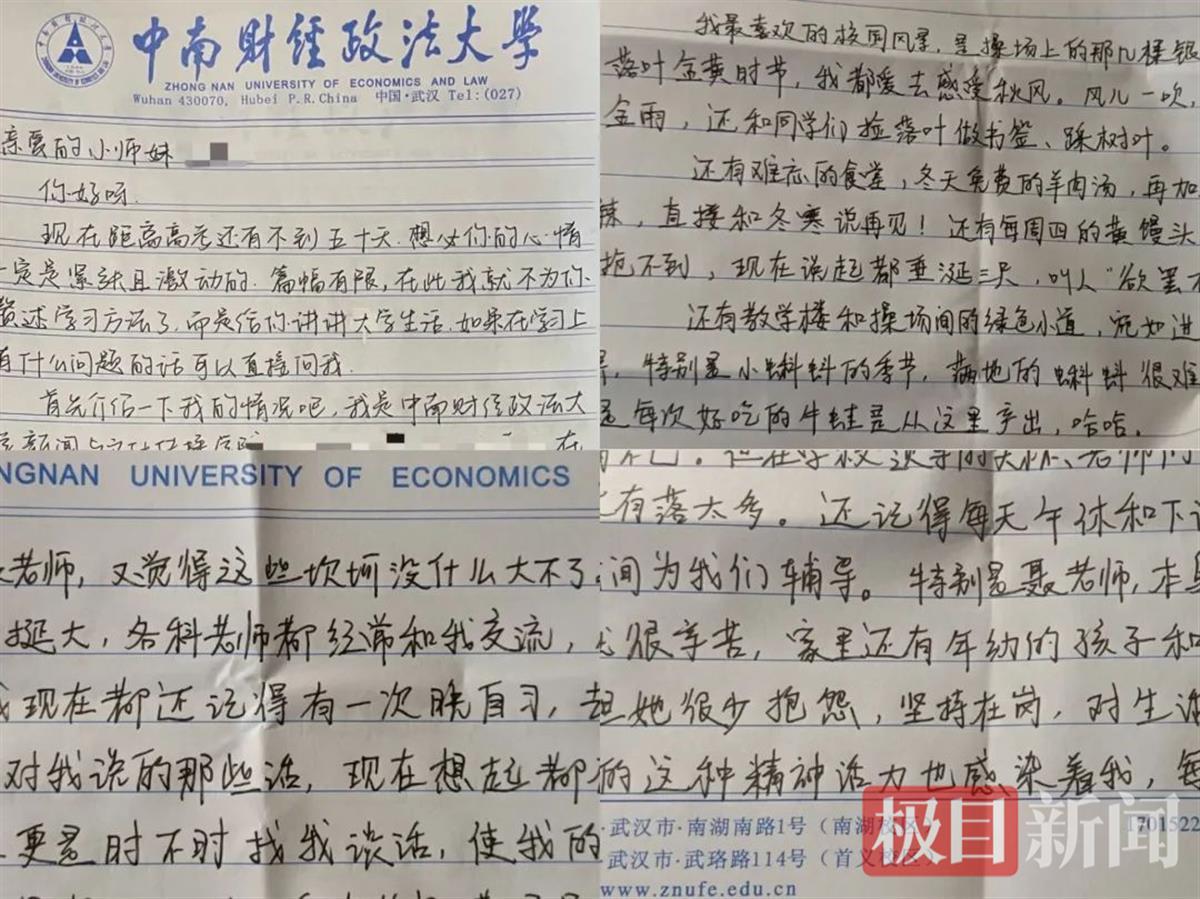 中南财经政法大学
ZHONG NAN UNIVERSITY OF ECONOMICS AND LAW
Wuhan 430070, Hubei P.R.China 中国·武汉 Tel:(027)
亲爱的小师妹
你好呀
现在距离高考还有不到五十天.想必你的心情
一定是紧张且激动的.篇幅有限,在此我就不为你
赘述学习方法了,而是给你讲讲大学生活.如果在学习上
有什么问题的话可以直接问我.
首先介绍一下我的情况吧,我是中南财经政法大
在
我最喜欢的校园风景,是操场上的那几棵银
落叶金黄时节,我都爱去感受秋风。风儿一吹,
金雨,还和同学们捡落叶做书签、踩树叶。
还有难忘的食堂,冬天免费的羊肉汤,再加
辣,直接和冬寒说再见!还有每周四的黄馒头
抢不到,现在说起都垂涎三尺,叫人“欲罢不
还有教学楼和操场间的绿色小道,宛如进
特别是小蝌蚪的季节,满地的蝌蚪很难
是每次好吃的牛蛙是从这里产出,哈哈.
NGNAN UNIVERSITY OF ECONOMICS
老师,又觉得这些坎坷没什么大不了
挺大,各科老师都经常和我交流,
我现在都还记得有一次晚自习,
对我说的那些话,现在想起都
更是时不时找我谈话,使我的
有落太多。还记得每天午休和下
间为我们辅导。特别是聂老师,本
很辛苦,家里还有年幼的孩子和
但她很少抱怨,坚持在岗,对生活
的这种精神活力也感染着我,每
武汉市·南湖南路1号(南湖校区)
1701522
武汉市·武珞路114号(首义校区)
www.znufe.edu.cn
极目新闻